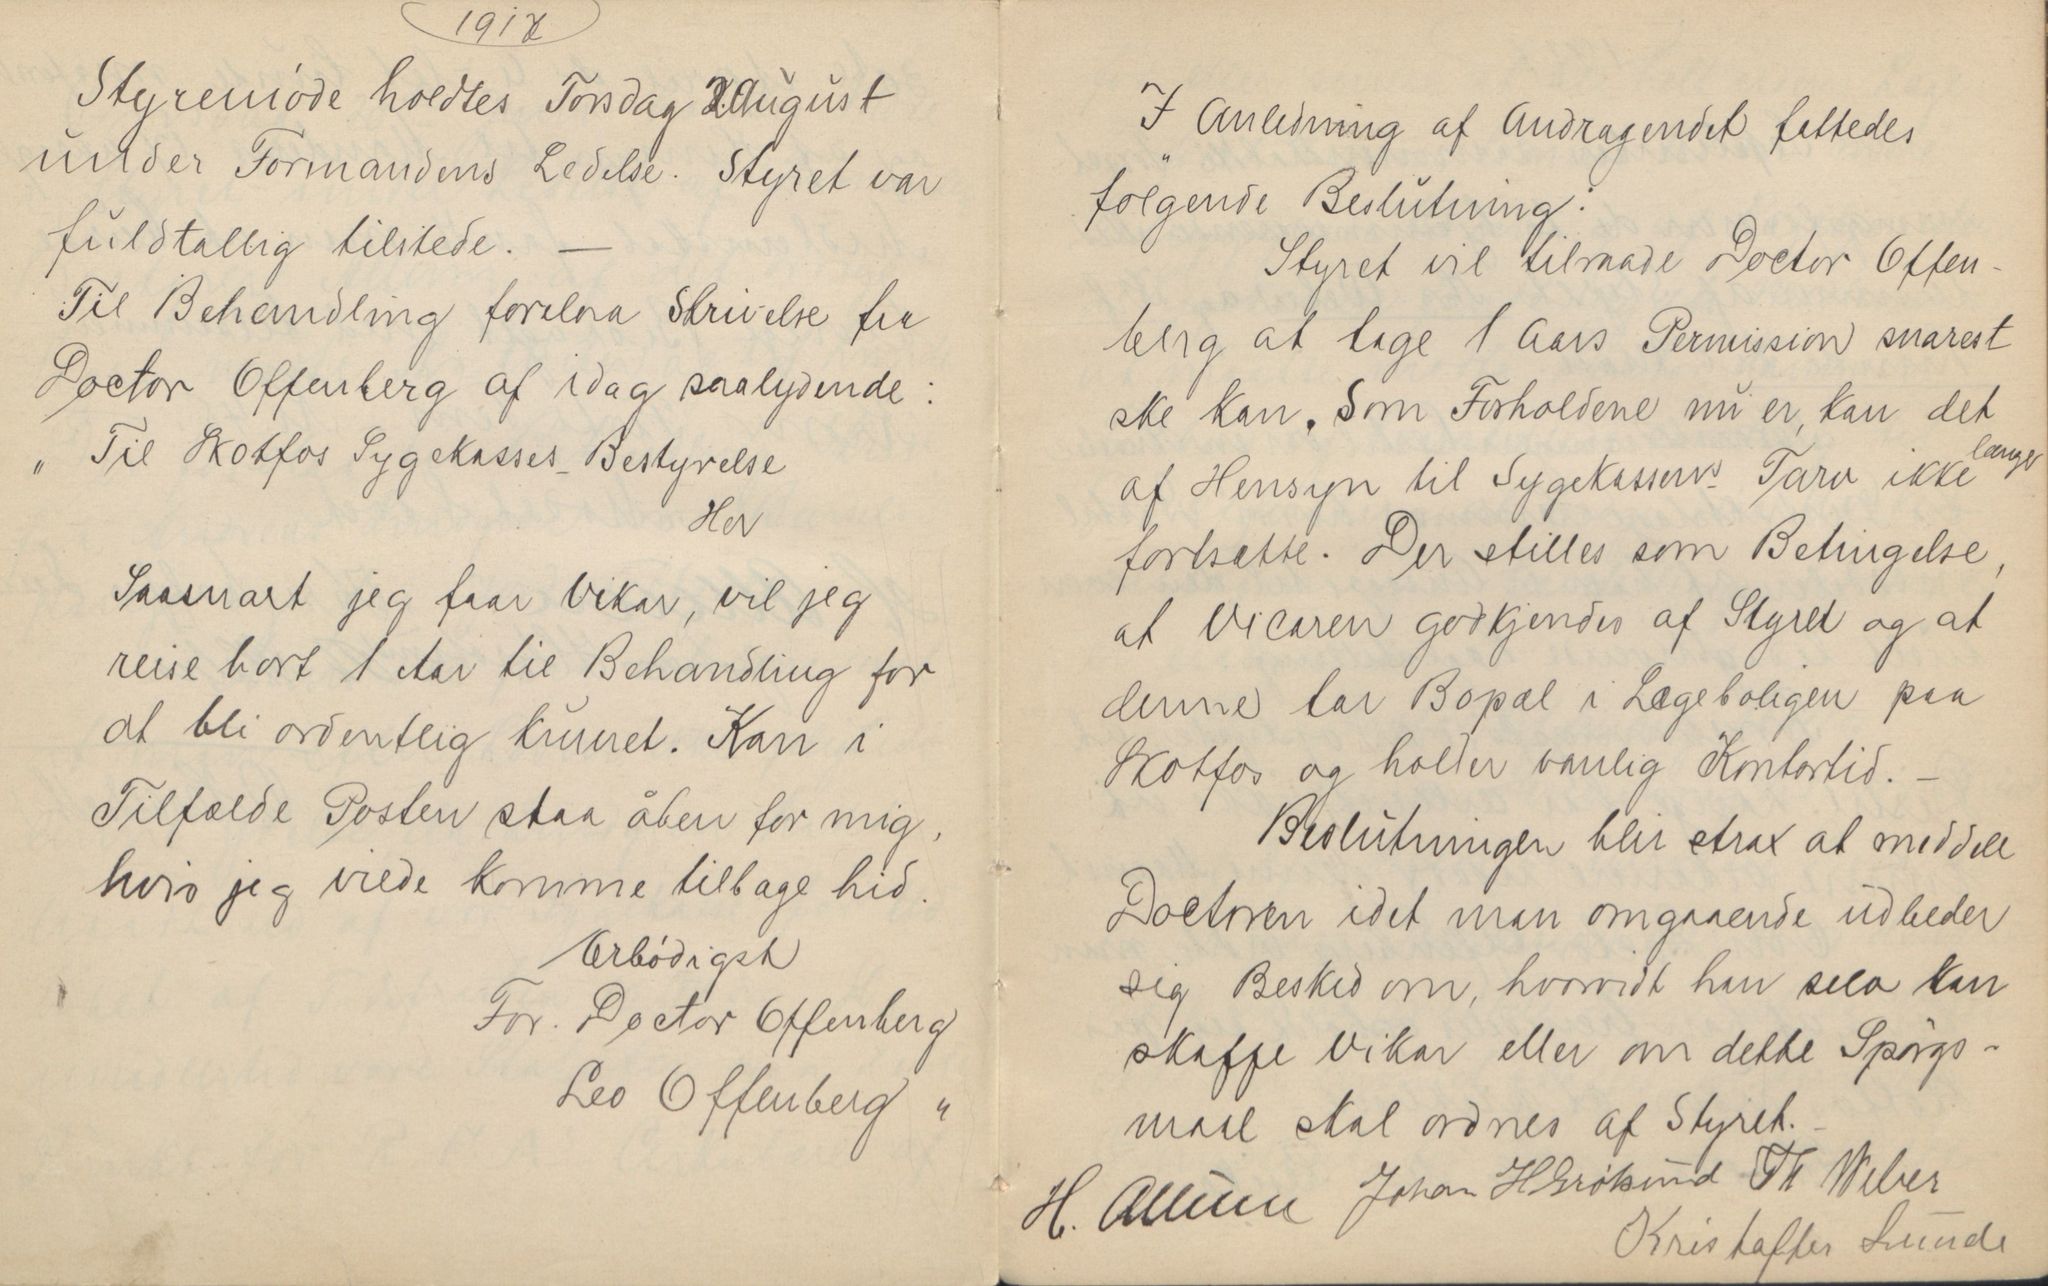 Styremöde holdtes Torsdag 2 August
under Formandens Ledelse. Styret var
fuldtallig tilstede. —
Til Behandling forelaa Skrivelse fra
Doctor Offenberg af idag saalydende:
„ Til Skotfos Sygekasses Bestyrelse
Her
Saasnart jeg faar Vikar, vil jeg
reise bort 1 Aar til Behandling for
at bli ordentlig kureret. Kan i
Tilfælde Posten staa åben for mig,
hvis jeg vilde komme tilbage hid.
Ærbödigst
For. Doctor Offenberg
Leo Offenberg "
I Anledning af Andragendet fattedes
fölgende Beslutning:
Styret vil tilraade Doctor Offen-
berg at tage 1 Aars Permission snarest
ske kan. Som Forholdene nu er, kan det
af Hensyn til Sygekassens Tarv ikke længer
fortsætte. Der stilles som Betingelse,
at Vicaren godkjendes af Styret og at
denne tar Bopæl i Lægeboligen paa
Skotfos og holder vanlig Kontortid. —
Beslutningen blir strax at meddele
Doctoren idet man omgaaende udbeder
sig Besked om, hvorvidt han selv kan
skaffe Vikar eller om dette Spörgs-
maal skal ordnes af Styret. —
H. Johan H Th Weber
Kristaffer Lunde